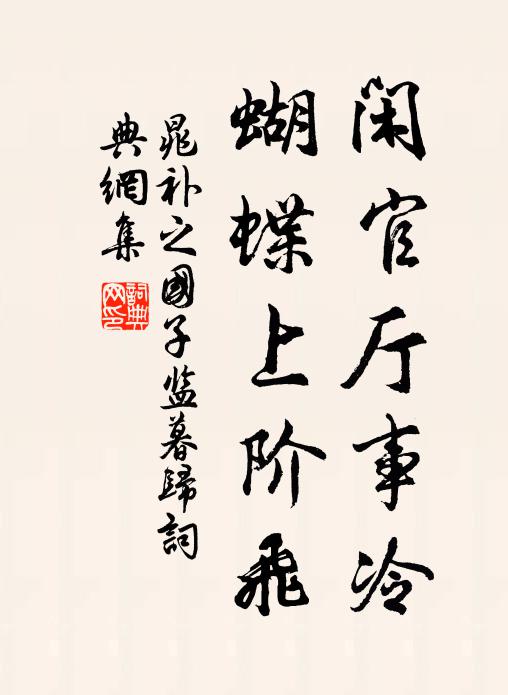 闲官厅事冷
蝴蝶上阶飞
晁补之國子监暮歸詞
典網集
詞典
网印